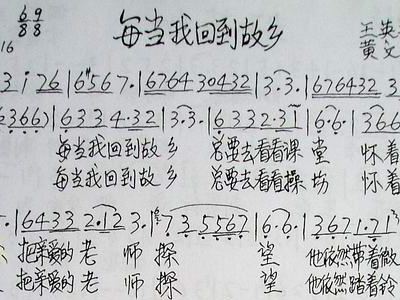 6 9
8 8
每当我回到故乡
王英
16
黄文
3 i 26 | 6 #5 6 7. | 6764 30432 | 3. 3. | 676432 3
366) | 6334.32 | 3. 3. | 6332.31 | 6. 6. | 366
每当我回到故乡 总要去看看课堂 怀着
每当我回到故乡 总要去看看操场 怀着
. | 6433 2.12 3. | 7 3 5567 | 6. 6. | 3671.71
把亲爱的老师探望 他依然带着微
把亲爱的老师探望 他依然踏着铃